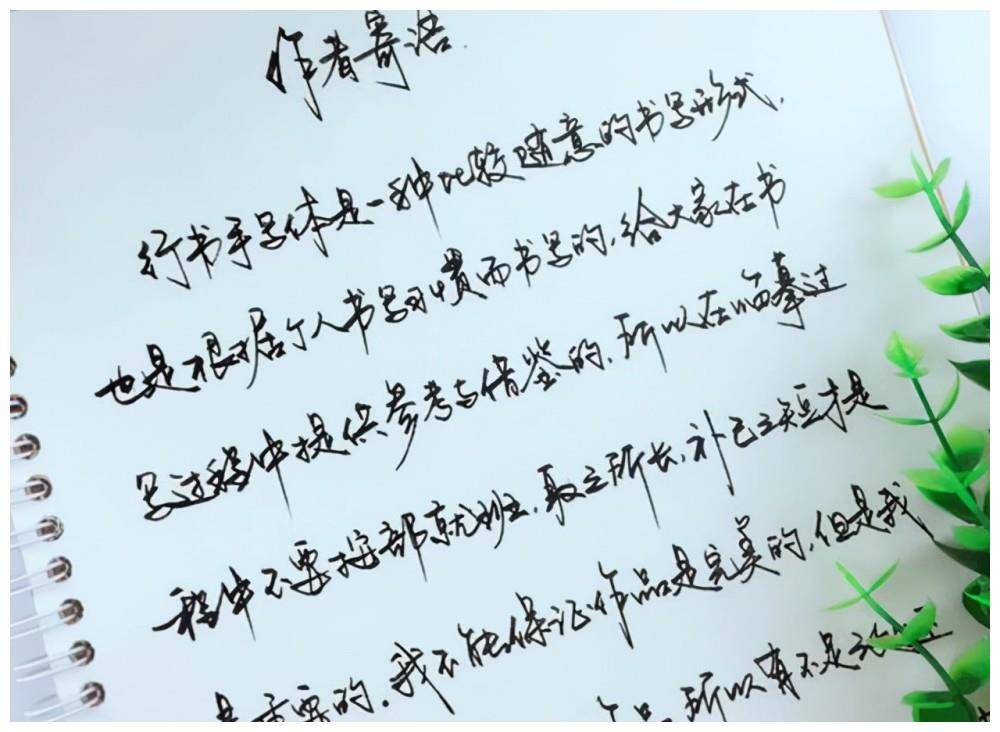 作者寄语
行书手写体是一种比较随意的书写形式,
也是根据个人书写习惯而书写的,给大家在书
写过程中提供参考与借鉴的,所以在临摹过
程中不要按部就班,取之所长,补己之短才是
重要的。我不能保证作品是完美的,但是我
作品,所以有不足